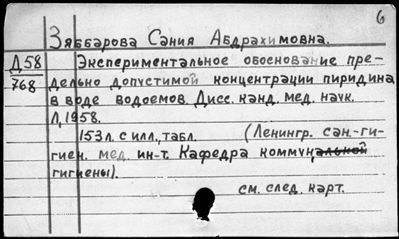 6
Зяббарова Сания Абдрахимовна.
Д58 Экспериментальное обоснование пре-
768 дельно допустимой концентрации пиридина
в воде водоемов. Дисс. канд. мед. наук.
Л, 1958.
153л. с илл., табл. (Ленингр. сан.-ги-
гиен. мед. ин-т. Кафедра коммунальной
гигиены).
см. след. карт.